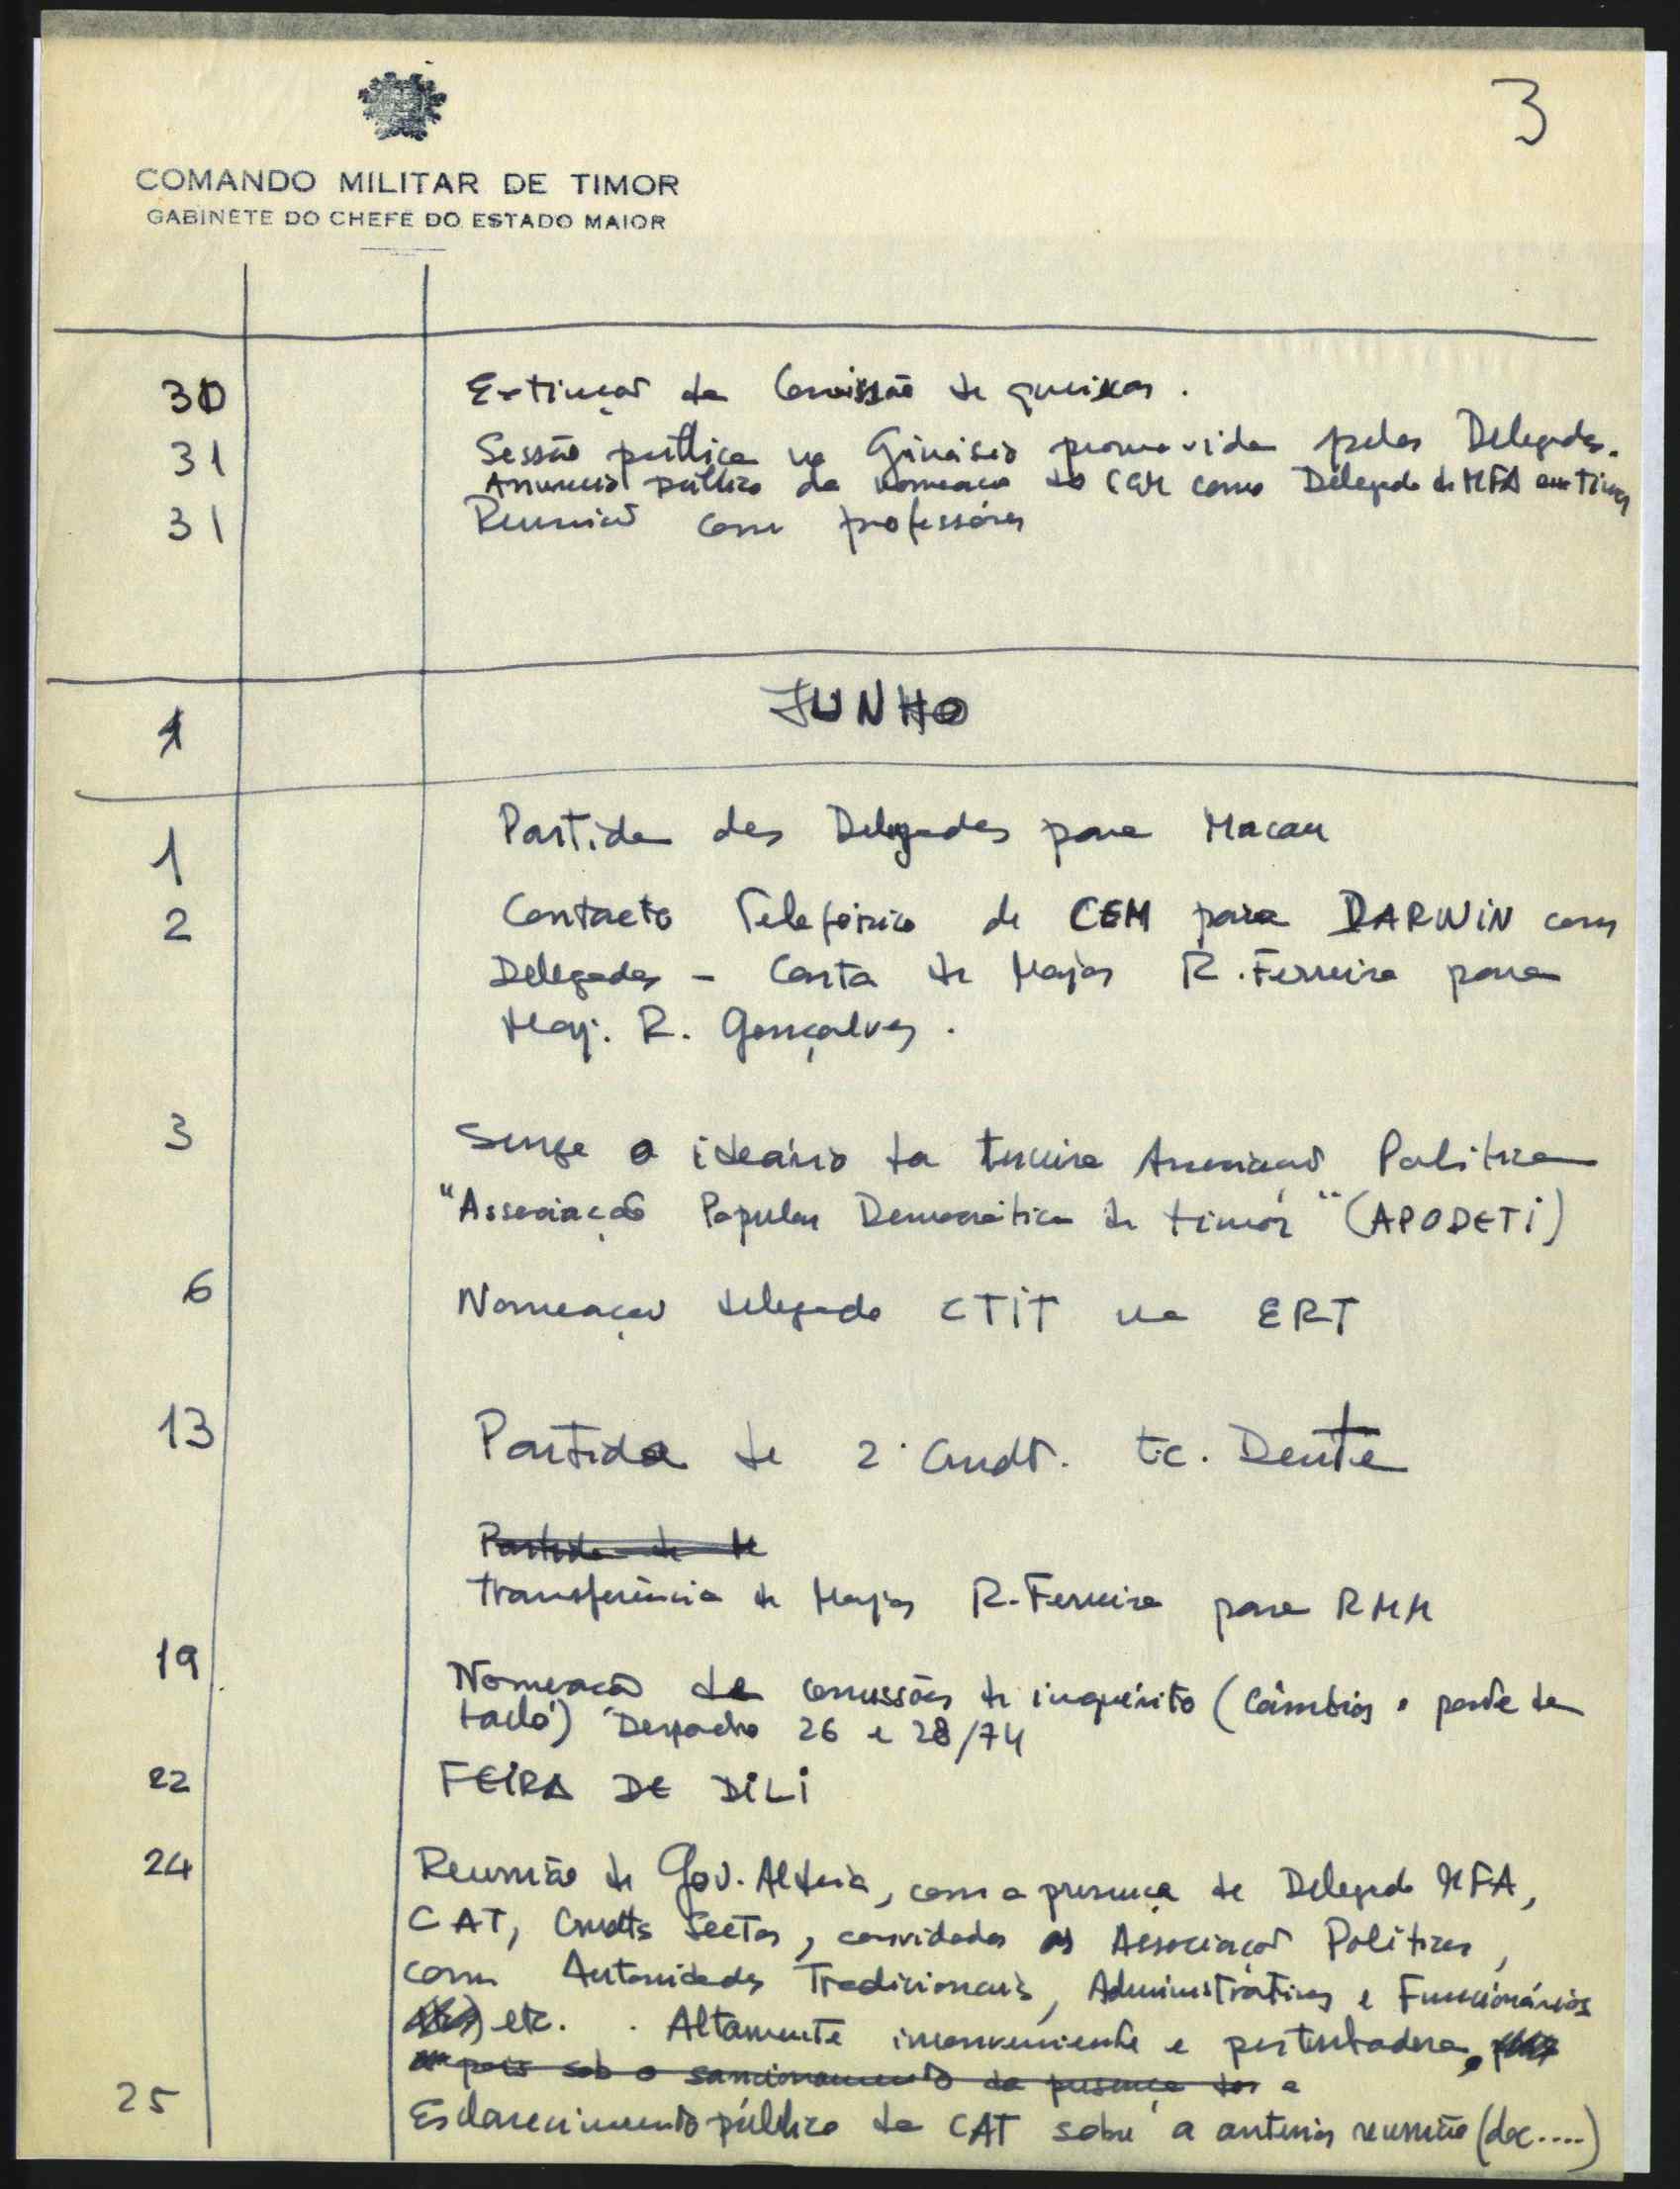 3
COMANDO MILITAR DE TIMOR
GABINETE DO CHEFE DO ESTADO MAIOR
30 Extinção da Comissão de queixas.
31 Sessão pública no Ginásio promovida pelos Delegados.
Anuncio público da nomeação do CEM como Delegado do MFA em Timor
31 Reunião com professores
JUNHO
1
1 Partida dos Delegados para Macau
2 Contacto Telefónico do CEM para DARWIN com
Delegados - Carta do Major R. Ferreira para
Maj. R. Gonçalves.
3 Surge o ideário da terceira Associação Politica
"Associação Popular Democrática de timor" (APODETI)
6 Nomeação delegado CTIT na ERT
13 Partida do 2º Cmdt. t.c. Dente
Partida do M
Transferência do Major R. Ferreira para RMM
19 Nomeação de comissões de inquérito (Câmbios e ponte de
tacló) Despacho 26 e 28/74
22 FEIRA DE DILI
24 Reunião do Gov. Aldeia, com a presença do Delegado MFA,
CAT, Cmdts Sector, convidados as Associações Politicas,
com Autoridades Tradicionais, Administrativas e Funcionários
etc. . Altamente inconveniente e perturbadora,
pois sob o sancionamento da presença dos e
25 Esclarecimento público da CAT sobre a anterior reunião (doc....)